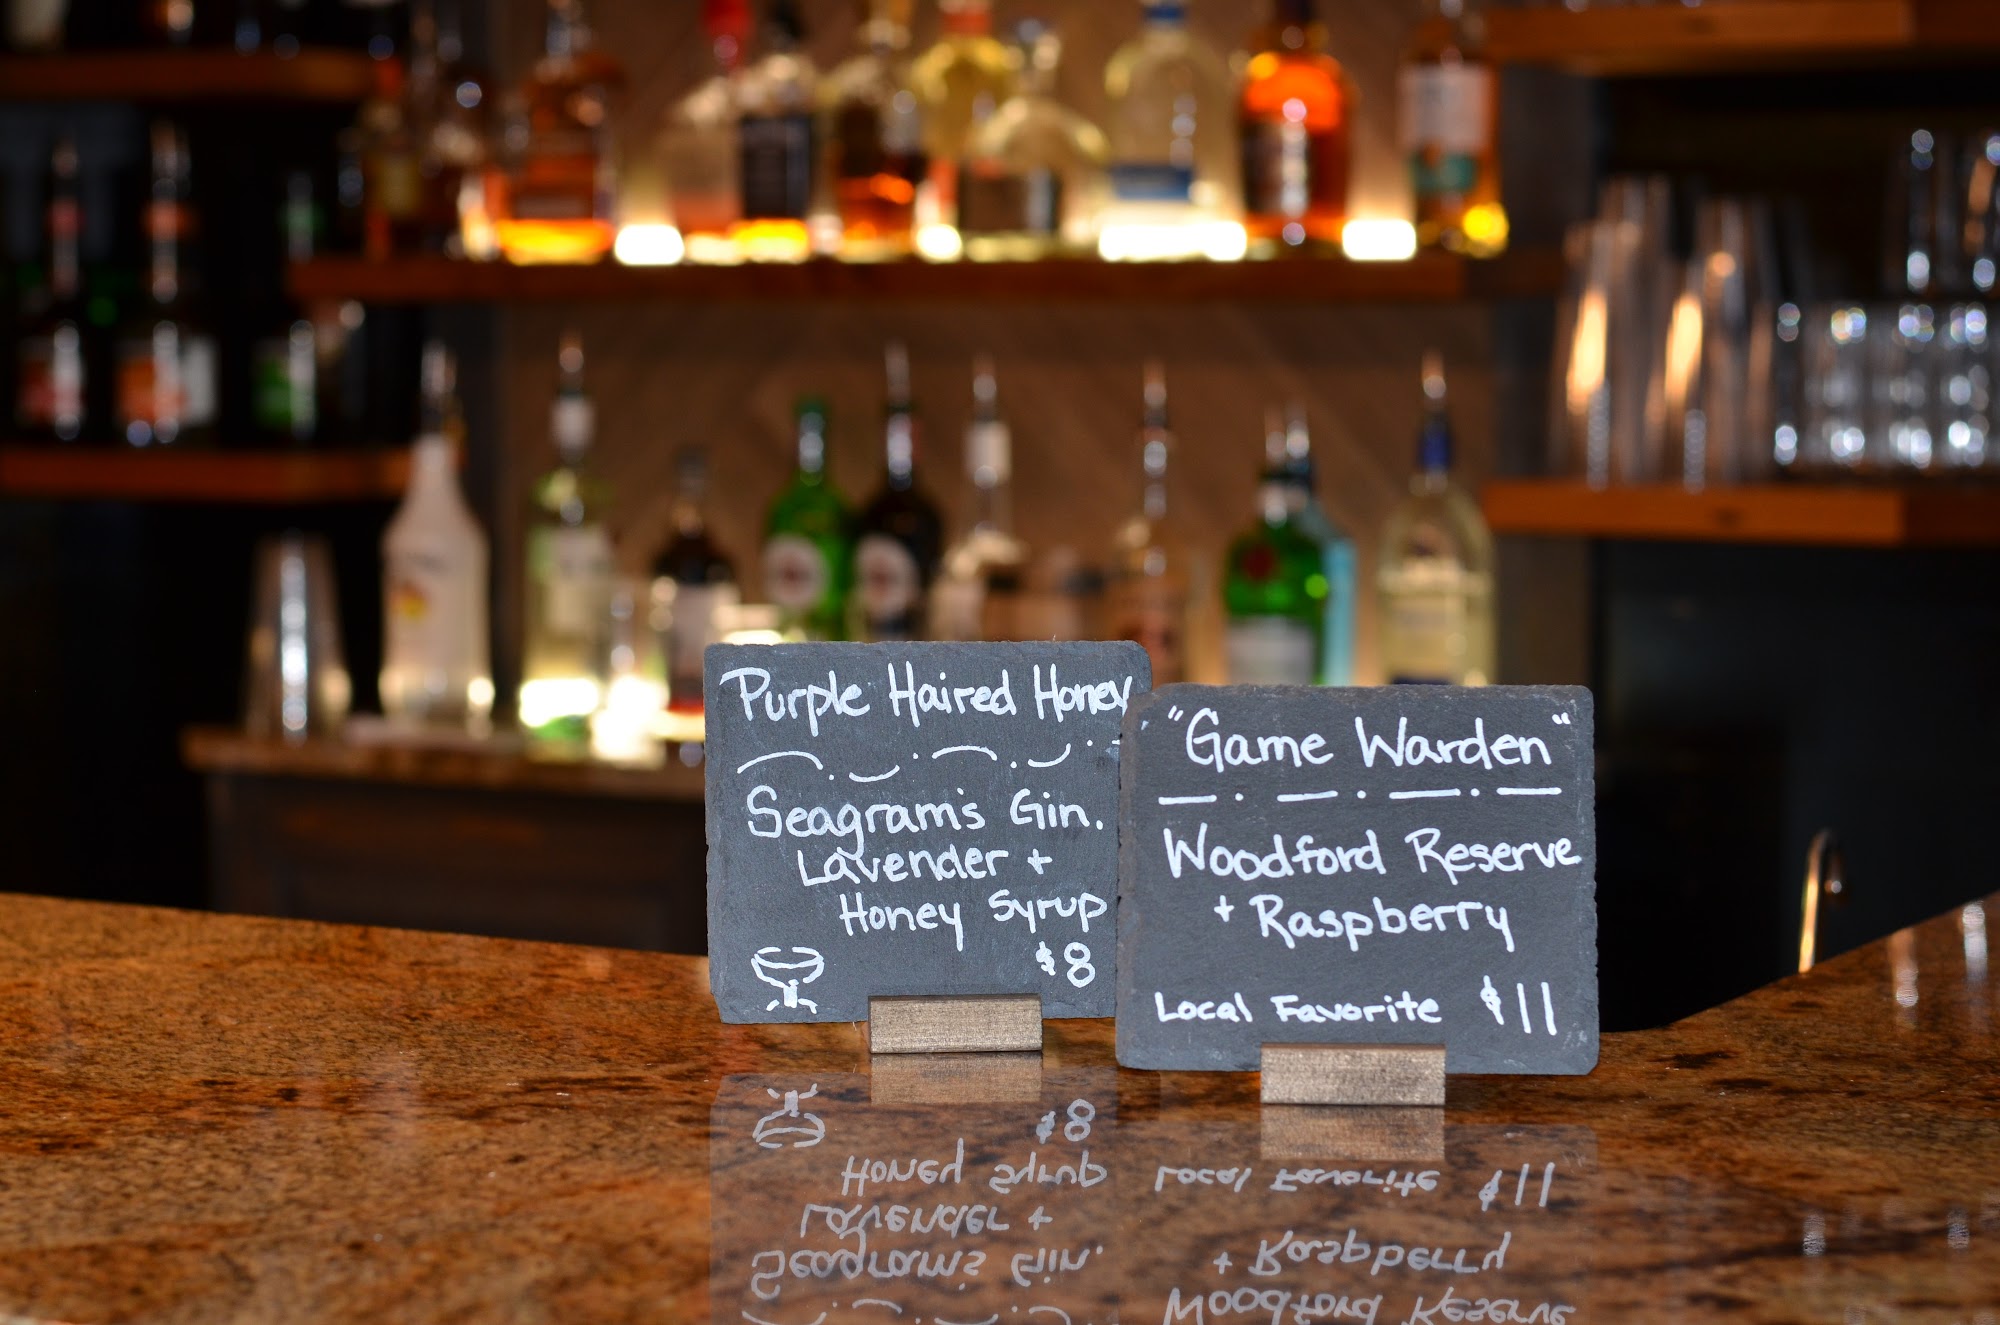 Purple Haired Honey
Seagram's Gin.
Lavender +
Honey Syrup
$8
"Game Warden"
Woodford Reserve
+ Raspberry
Local Favorite $11